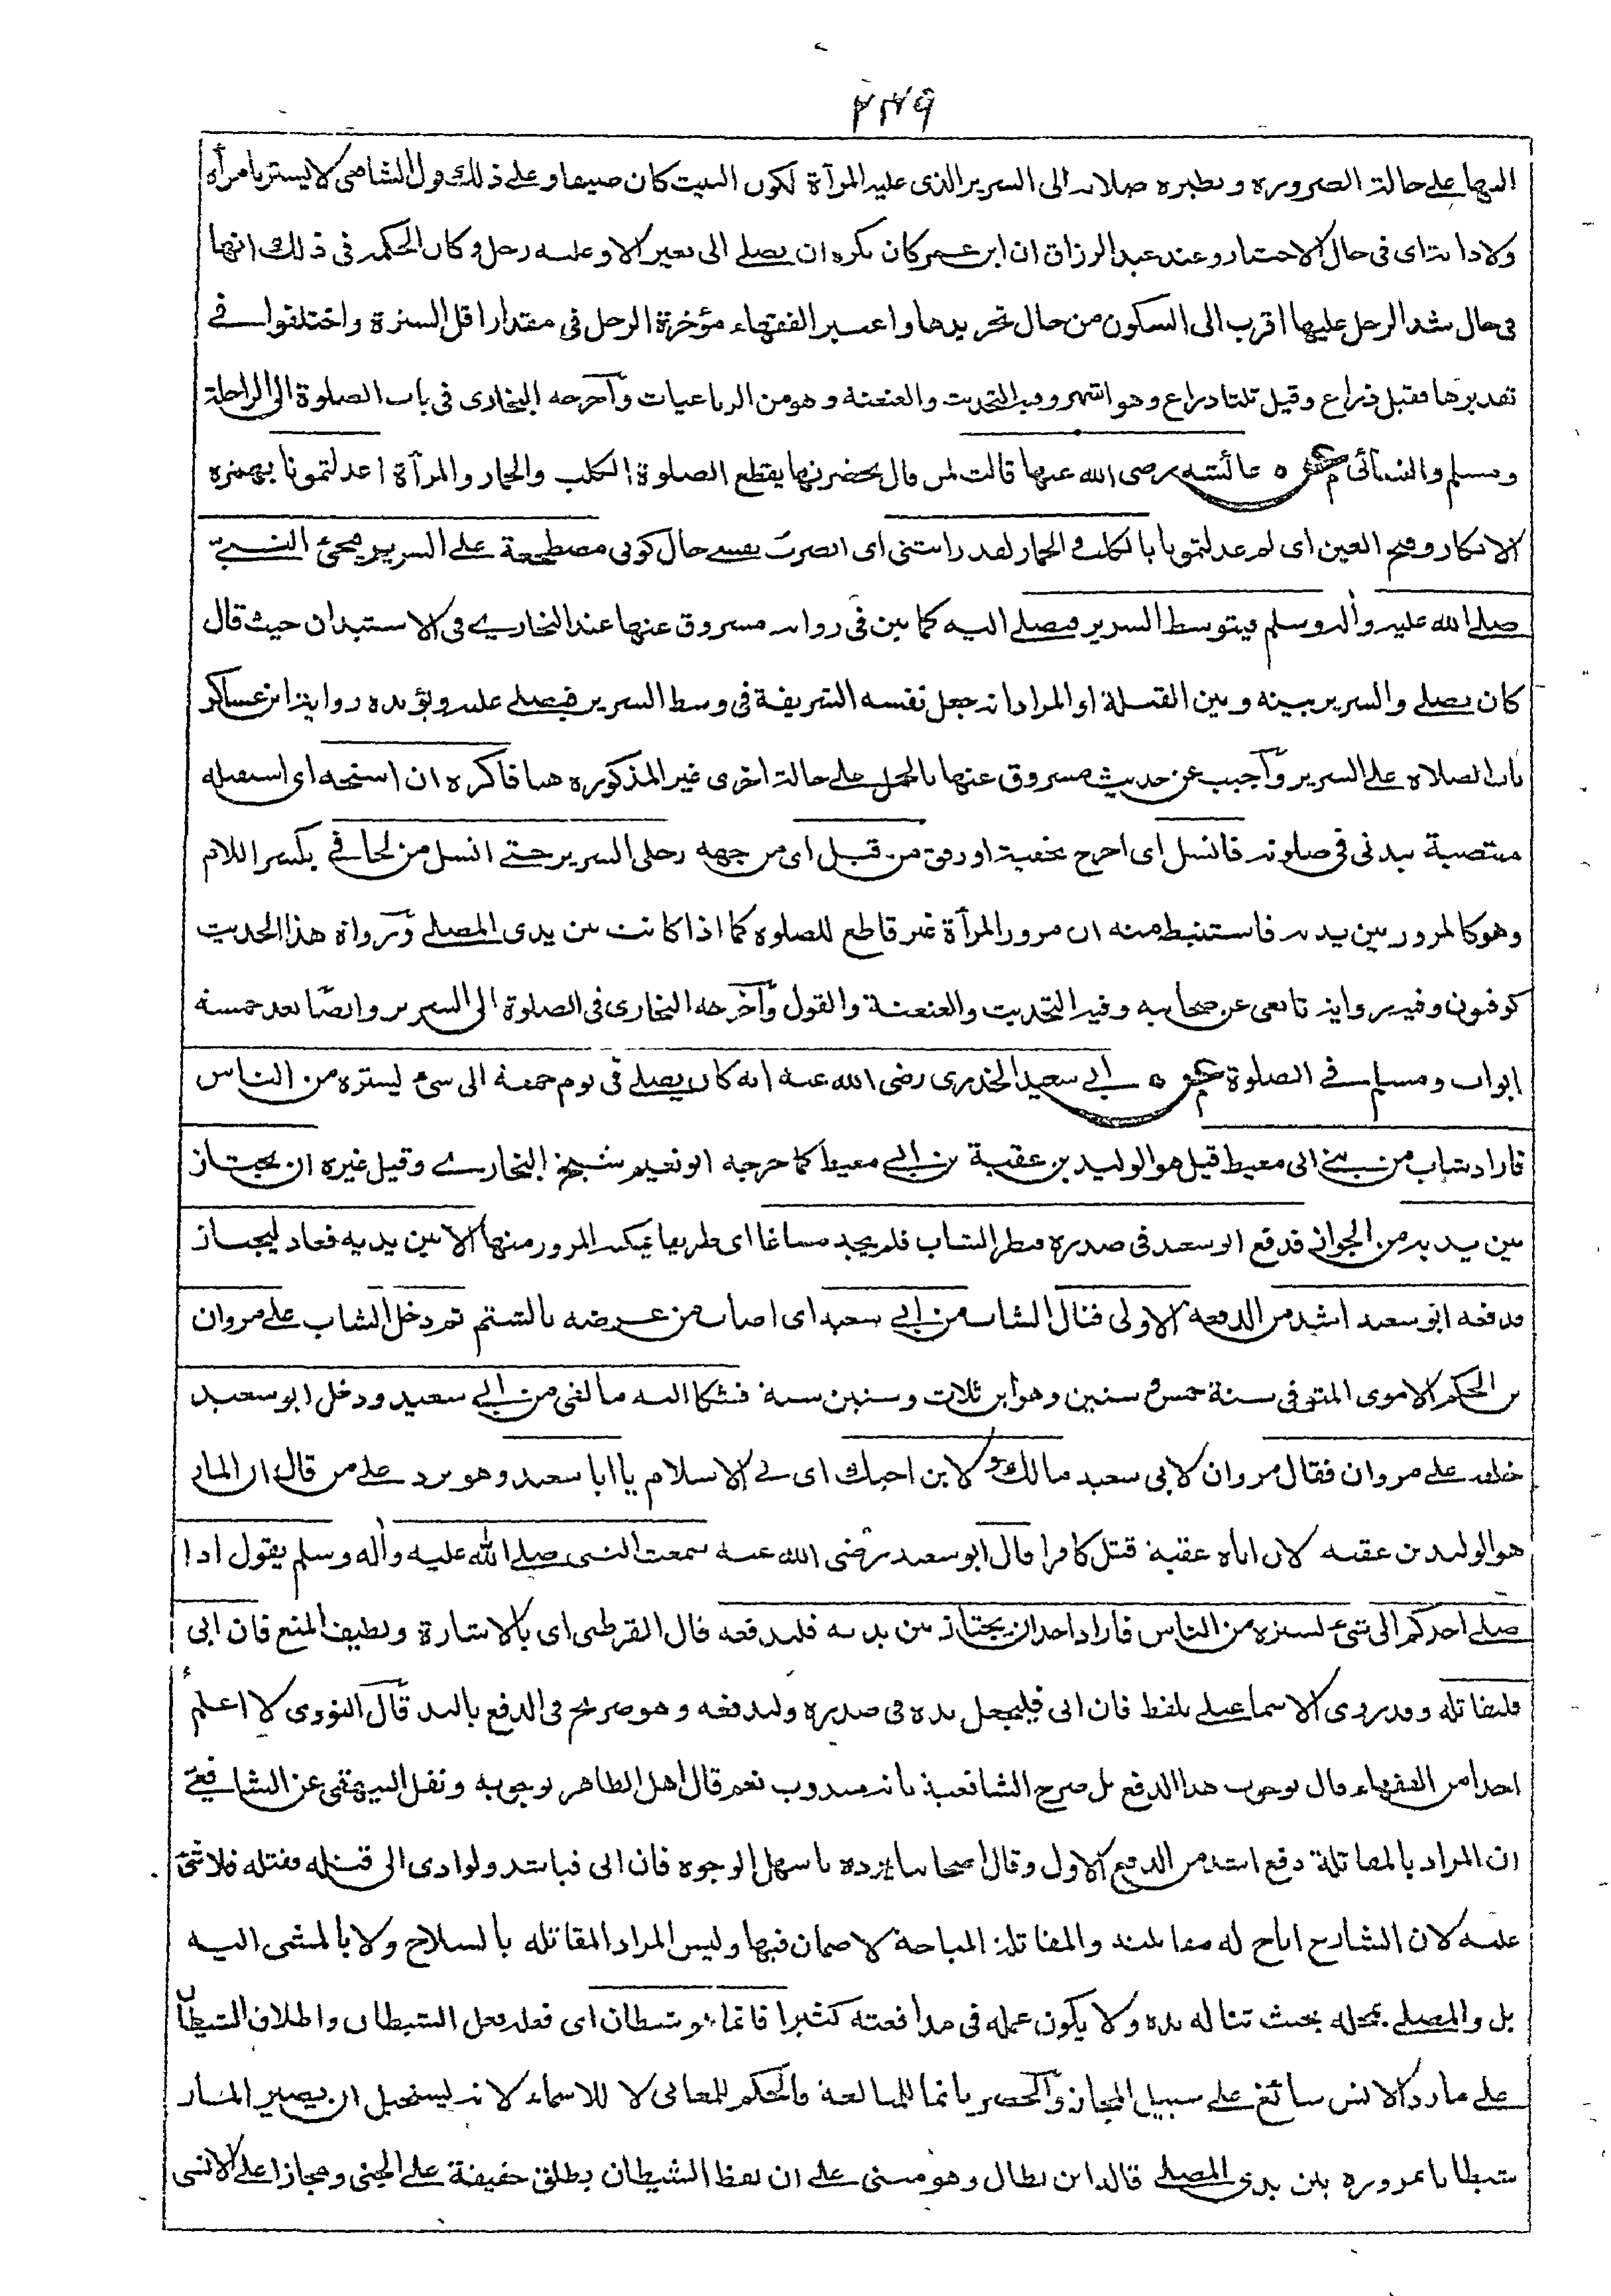 ٢٢٩
اليها على حالة الضرورة ونظيره صلاته الى السرير الذى عليه المرأة لكون البيت كان ضيقا وعلى ذلك قول الشافعى لا يستتر بامرأة
ولا دابة اى فى حال الاختيار وعند عبد الرزاق ان ابن عمر كان يكره ان يصلى الى بعير الا وعليه رحل وكان الحكمة فى ذلك انها
فى حال شد الرحل عليها اقرب الى السكون من حال تجريدها واعتبر الفقهاء مؤخرة الرحل فى مقدار اقل السترة واختلفوا فى
تقديرها فقيل ذراع وقيل ثلثا ذراع وهو اشهر وفيه التحديث والعنعنة وهو من الرباعيات وآخرجه البخارى فى باب الصلوة الى الراحلة
ومسلم والنسائى عن عائشة رضى الله عنها قالت لمن قال بحضرتها يقطع الصلوة الكلب والحمار والمرأة اعدلتمونا بهمزة
الانكار وفتح العين اى لم عدلتمونا بالكلب والحمار لقد رايتنى اى ابصرت نفسى حال كونى مضطجعة على السرير فيجئ النبى
صلى الله عليه وآله وسلم فيتوسط السرير فيصلى اليه كما بين فى رواية مسروق عنها عند البخارى فى الاستيذان حيث قال
كان يصلى والسرير بينه وبين القبلة او المراد انه جعل نفسه الشريفة فى وسط السرير فيصلى عليه ويؤيده رواية ابن عساكر
باب الصلاة على السرير وآجيب عن حديث مسروق عنها بالحمل على حالة اخرى غير المذكورة هنا فاكره ان اسنحه اى استقبله
منتصبة ببدنى فى صلوته فانسل اى اخرج بخفية او رفق من قبل اى من جهة رجلى السرير حتى انسل من لحافى بكسر اللام
وهو كالمرور بين يديه فاستنبط منه ان مرور المرأة غير قاطع للصلوة كما اذا كانت بين يدى المصلى ورواة هذا الحديث
كوفيون وفيه رواية تابعى عن صحابيه وفيه التحديث والعنعنة والقول وآخرجه البخارى فى الصلوة الى السرير وايضا بعد خمسة
ابواب ومسلم فى الصلوة عن ابى سعيد الخدرى رضى الله عنه انه كان يصلى فى يوم جمعة الى شئ يستره من الناس
فاراد شاب من بنى ابى معيط قيل هو الوليد بن عقبة بن ابى معيط كما خرجه ابو نعيم شيخ البخارى وقيل غيره ان يجتاز
بين يديه من الجواز فدفع ابو سعيد فى صدره فنظر الشاب فلم يجد مساغا اى طريقا يمكنه المرور منها الا بين يديه فعاد ليجتاز
فدفعه ابو سعيد اشد من الدفعة الاولى فنال الشاب من ابى سعيد اى اصاب من عرضه بالشتم ثم دخل الشاب على مروان
بن الحكم الاموى المتوفى سنة خمس وستين وهو ابن ثلاث وستين سنة فشكا اليه ما لقى من ابى سعيد ودخل ابو سعيد
خلفه على مروان فقال مروان لابى سعيد مالك ولابن اخيك اى فى الاسلام يا ابا سعيد وهو يرد على من قال ان المار
هو الوليد بن عقبة لان اباه عقبة قتل كافرا قال ابو سعيد رضى الله عنه سمعت النبى صلى الله عليه وآله وسلم يقول اذا
صلى احدكم الى شئ يستره من الناس فاراد احد ان يجتاز بين يديه فليدفعه قال القرطبى اى بالاشارة ولطيف المنع فان ابى
فليقاتله وقد روى الاسماعيلى بلفظ فان ابى فليجعل يده فى صدره وليدفعه وهو صريح فى الدفع باليد قال النووى لا اعلم
احدا من الفقهاء قال بوجوب هذا الدفع بل صرح الشافعية بانه مندوب نعم قال اهل الظاهر بوجوبه ونقل البيهقى عن الشافعى
ان المراد بالمقاتلة دفع اشد من الدفع الاول وقال اصحابنا يرده باسهل الوجوه فان ابى فباشد ولو ادى الى قتله فقتله فلا شئ
عليه لان الشارع اباح له مقاتلته والمقاتلة المباحة لا ضمان فيها وليس المراد المقاتلة بالسلاح ولا بالمشى اليه
بل والمصلى بمحله بحيث تناله يده ولا يكون عمله فى مدافعته كثيرا فانما هو شيطان اى فعله فعل الشيطان واطلاق الشيطان
على مارد الانس سائغ على سبيل المجاز وآلحصر بانما للمبالغة فالحكم للمعانى لا للاسماء لانه يستحيل ان يصير المار
شيطانا بمروره بين يدى المصلى قاله ابن بطال وهو مبنى على ان لفظ الشيطان يطلق حقيقة على الجنى ومجازا على الانسى